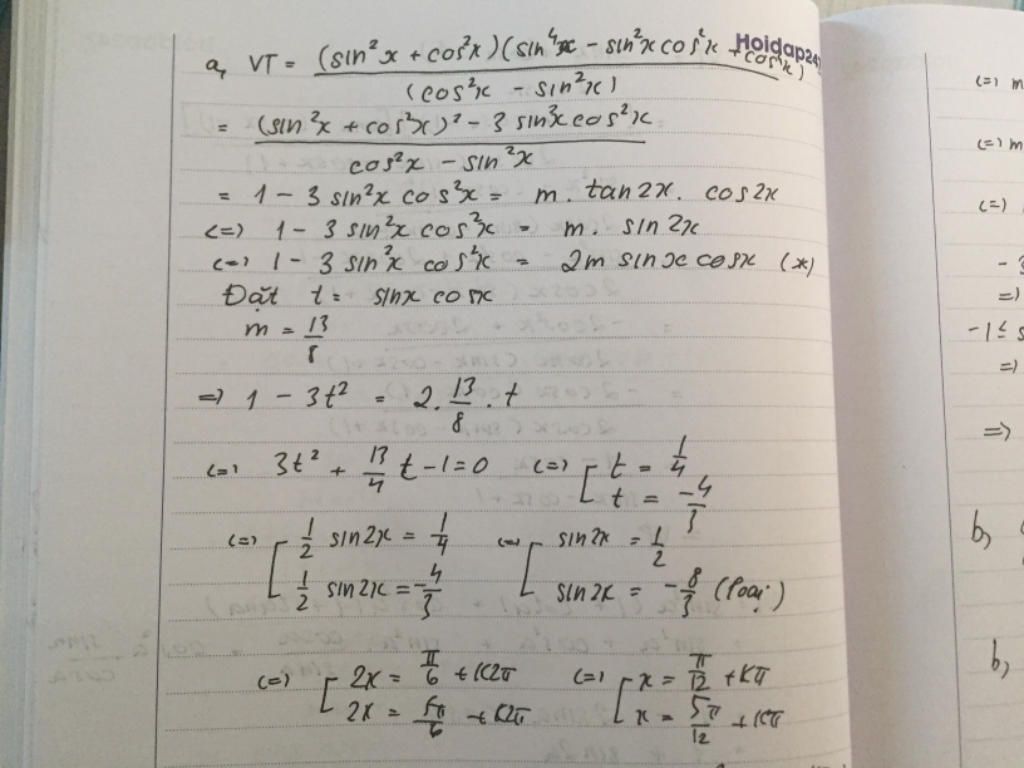 a, VT = (sin²x + cos²x)(sin⁴x - sin²x cos²x + cos⁴x) / (cos²x - sin²x)
Hoidap247
= (sin²x + cos²x)² - 3 sin²x cos²x / cos²x - sin²x
= 1 - 3 sin²x cos²x = m. tan2x. cos2x
<=> 1 - 3 sin²x cos²x = m. sin 2x
<=> 1 - 3 sin²x cos²x = 2m sinx cosx (*)
Đặt t = sinx cosx
m = 13/8
=> 1 - 3t² = 2. 13/8 . t
<=> 3t² + 13/4 t - 1 = 0 <=> [ t = 1/4
t = -4/3
<=> [ 1/2 sin2x = 1/4 <=> [ sin2x = 1/2
1/2 sin2x = -4/3 sin2x = -8/3 (loại)
<=> [ 2x = π/6 + K2π <=> [ x = π/12 + Kπ
2x = 5π/6 + K2π x = 5π/12 + Kπ
(=) m
(=) m
(=)
- 3
=)
-1 ≤ s
=)
=>
b,
b,